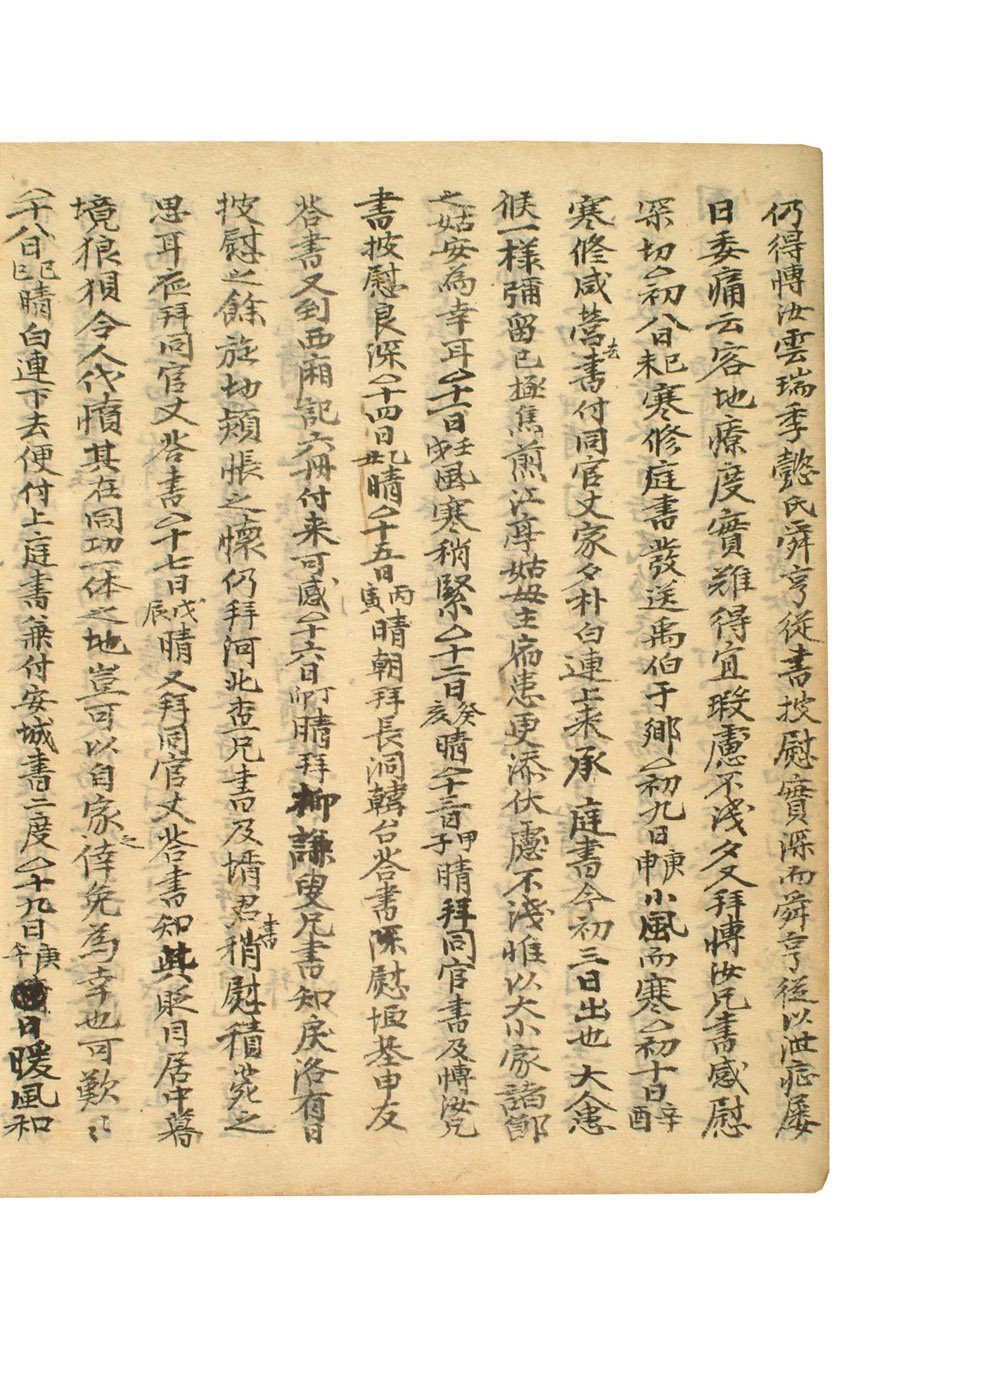 仍得博汝雲瑞季懿氏舜亨從書披慰實深而舜亨從以泄症屢
日委痛云客地療度實難得宜瑕慮不淺夕又拜博汝兄書感慰
深切〈初八日己未寒修庭書發送禹伯于鄕〈初九日庚申小風而寒〈初十日辛酉
寒修咸營書去付同官丈家夕朴白連上来承 庭書今初三日出也大人患
候一樣彌留已極焦煎江亭姑母主宿患更添伏慮不淺惟以大小家諸節
之姑安為幸耳〈十一日壬戌風寒稍緊〈十二日癸亥晴〈十三日甲子晴拜同官書及博汝兄
書披慰良深〈十四日乙丑晴〈十五日丙寅晴朝拜長洞韓台答書深慰垣基申友
答書又到西廂記六冊付来可感〈十六日丁卯晴拜柳謙叟兄書知戾洛有日
披慰之餘旋切頍悵之懷仍拜河北査兄書及壻君書稍慰積菀之
思耳夜拜同官丈答書〈十七日戊辰晴又拜同官丈答書知其貶目居中暮
境狼狽令人代憤其在同功一体之地豈可以自家之倖免為幸也可歎〻
〈十八日己巳晴白連下去便付上庭書兼付安城書二度〈十九日庚午日暖風和